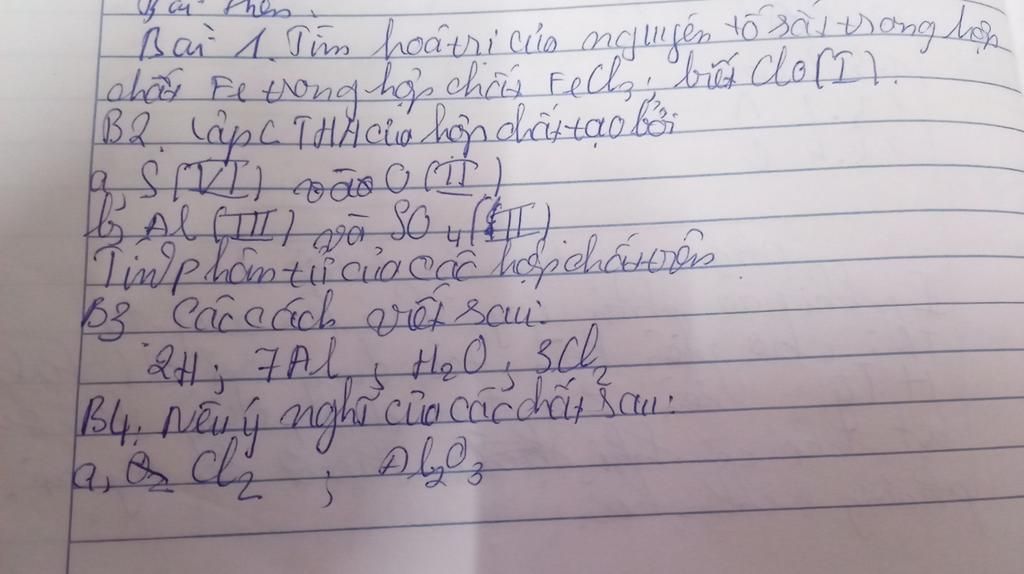 Bài 1. Tìm hoá trị của nguyên tố sắt trong hợp
chất Fe trong hợp chất FeCl3, biết Clo (I).
B2. Lập CTHH của hợp chất tạo bởi
a, S (VI) và O (II)
b, Al (III) và SO4 (II)
Tính phân tử của các hợp chất trên
B3 Các cách viết sau:
2H; 7Al; H2O; 3Cl2
B4. Nêu ý nghĩ của các chất sau:
a, Cl2 ; Al2O3